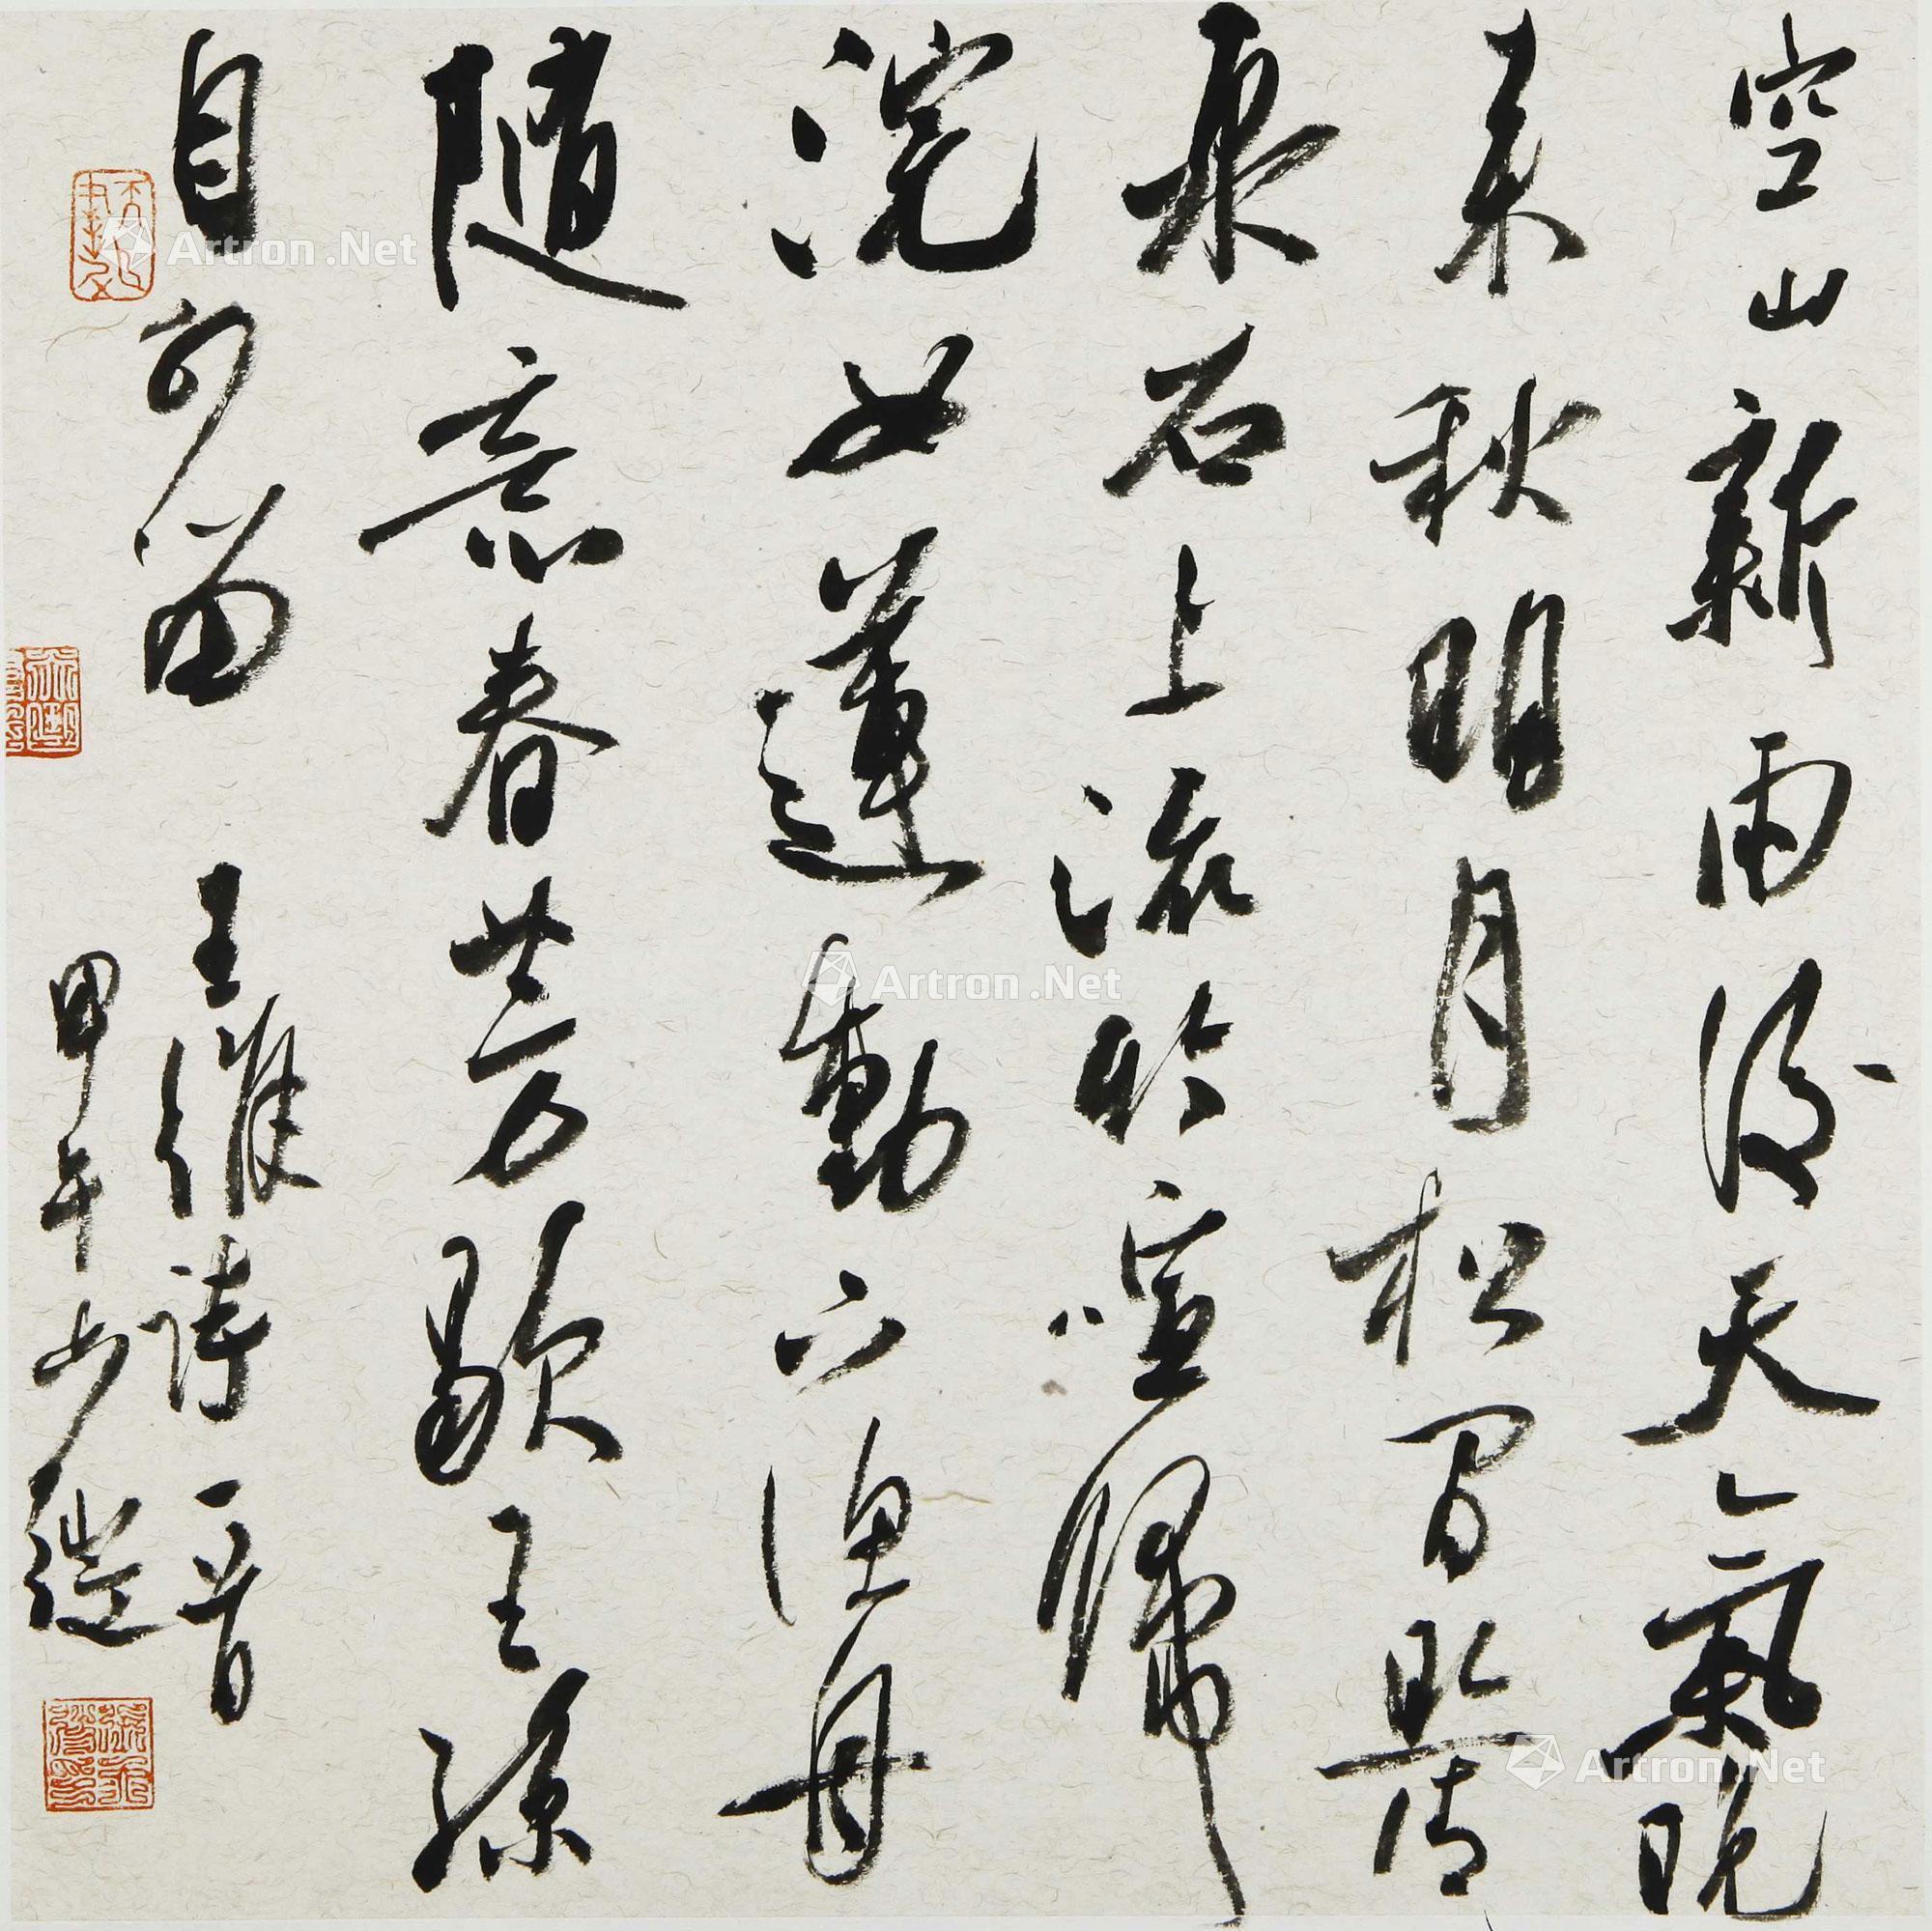 空山新雨後天氣晚
來秋明月松間照清
泉石上流竹喧歸
浣女蓮動下漁舟
隨意春芳歇王孫
自可留
王維詩一首
甲午
Artron.Net
Artron.Net
Artron.Net